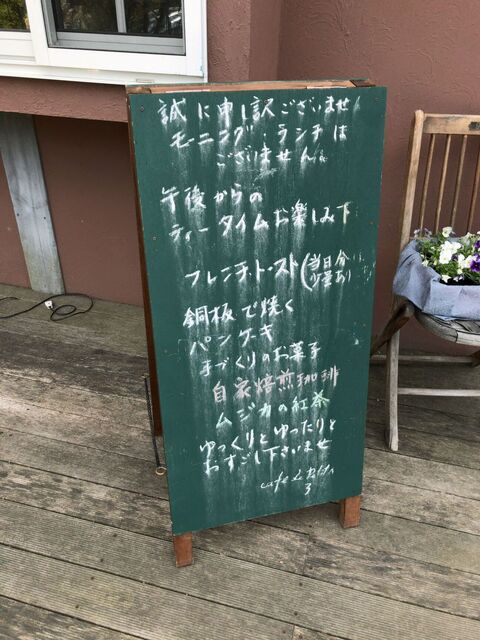 誠に申し訳ございません
モーニング・ランチは
ございません。
午後からの
ティータイムお楽しみ下
フレンチトースト(当日分
少量あり)
銅板で焼く
パンケーキ
手づくりのお菓子
自家焙煎珈琲
ムジカの紅茶
ゆっくりとゆったりと
おすごし下さいませ
cafe